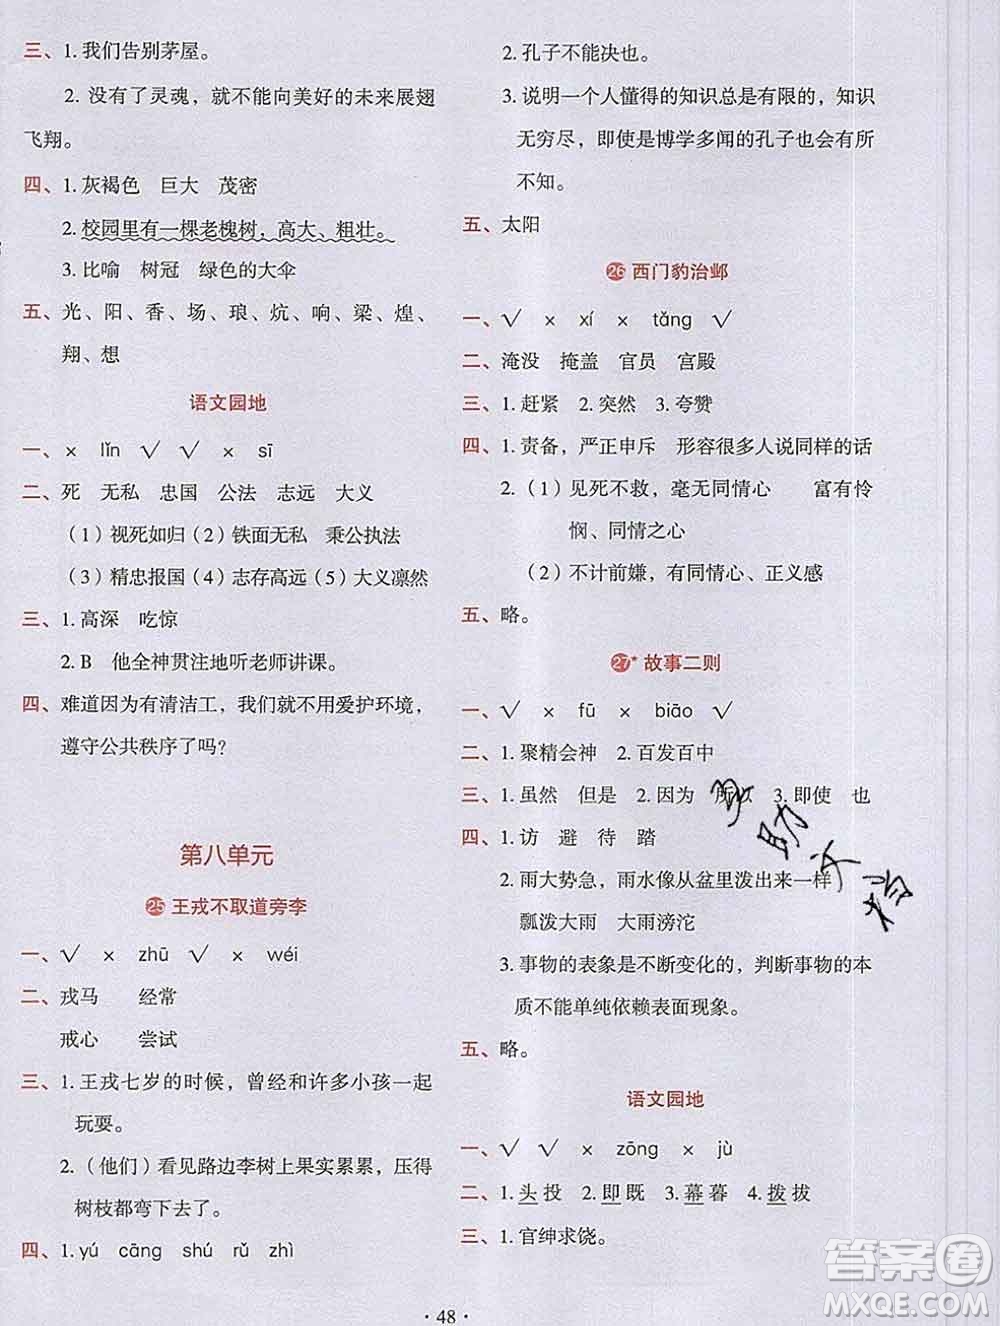 三、1. 我们告别茅屋。
2. 没有了灵魂，就不能向美好的未来展翅
飞翔。
四、1. 灰褐色 巨大 茂密
2. 校园里有一棵老槐树，高大、粗壮。
3. 比喻 树冠 绿色的大伞
五、光、阳、香、场、琅、炕、响、梁、煌、
翔、想
语文园地
一、× lǐn √ √ × sī
二、死 无私 忠国 公法 志远 大义
（1）视死如归（2）铁面无私 秉公执法
（3）精忠报国（4）志存高远（5）大义凛然
三、1. 高深 吃惊
2. B 他全神贯注地听老师讲课。
四、难道因为有清洁工，我们就不用爱护环境，
遵守公共秩序了吗？
第八单元
25 王戎不取道旁李
一、√ × zhū √ × wéi
二、戎马 经常
戒心 尝试
三、1. 王戎七岁的时候，曾经和许多小孩一起
玩耍。
2.（他们）看见路边李树上果实累累，压得
树枝都弯下去了。
四、1. yú cāng shú rǔ zhì
2. 孔子不能决也。
3. 说明一个人懂得的知识总是有限的，知识
无穷尽，即使是博学多闻的孔子也会有所
不知。
五、太阳
26 西门豹治邺
一、√ × xí × tǎng √
二、淹没 掩盖 官员 宫殿
三、1. 赶紧 2. 突然 3. 夸赞
四、1. 责备，严正申斥 形容很多人说同样的话
2.（1）见死不救，毫无同情心 富有怜
悯、同情之心
（2）不计前嫌，有同情心、正义感
五、略。
27* 故事二则
一、√ × fū × biāo √
二、1. 聚精会神 2. 百发百中
三、1. 虽然 但是 2. 因为 所以 3. 即使 也
四、1. 访 避 待 踏
2. 雨大势急，雨水像从盆里泼出来一样
瓢泼大雨 大雨滂沱
3. 事物的表象是不断变化的，判断事物的本
质不能单纯依赖表面现象。
五、略。
语文园地
一、√ √ × zōng × jù
二、1. 头 投 2. 即 既 3. 幕 暮 4. 拨 拔
三、1. 官绅求饶。
· 48 ·
答案圈
MXQE.COM